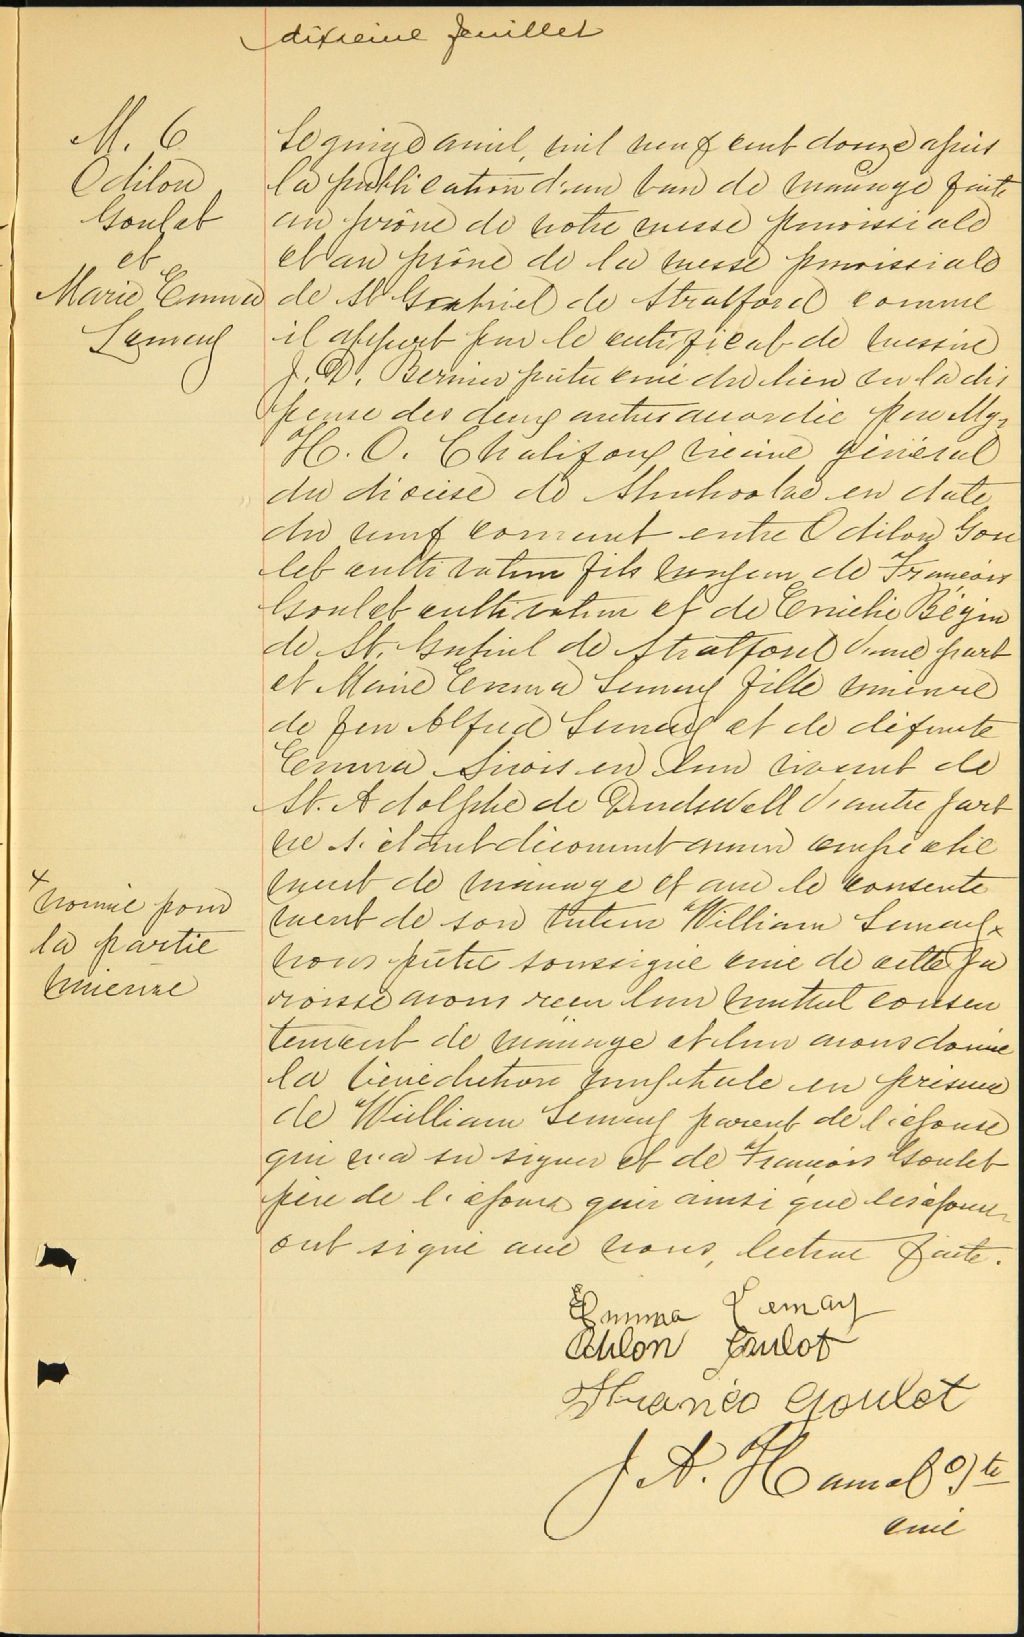 dixième feuillet
M. 6
Odilon
Goulet
et
Marie Emma
Lemay
Le quinze avril, mil neuf cent douze après
la publication d'un ban de mariage faite
au prône de notre messe paroissiale
et au prône de la messe paroissiale
de St Gabriel de Stratford comme
il appert par le certificat de messire
J. D. Bernier prêtre curé du lieu vu la dis
pense des deux autres accordée par Mgr
H. O. Chalifoux vicaire général
du diocèse de Sherbrooke en date
du neuf courant entre Odilon Gou
let cultivateur fils majeur de François
Goulet cultivateur et de Emélie Bégin
de St. Gabriel de Stratford d'une part
et Marie Emma Lemay fille mineure
de feu Alfred Lemay et de défunte
Emma Sirois en leur vivant de
St. Adolphe de Dudswell d'autre part
ne s'étant découvert aucun empêche
ment de mariage et avec le consente
ment de son tuteur William Lemay x
x nommé pour
la partie
mineure
nous prêtre soussigné curé de cette pa
roisse avons reçu leur mutuel consen
tement de mariage et leur avons donné
la bénédiction nuptiale en présence
de William Lemay parent de l'épouse
qui n'a su signer et de François Goulet
père de l'époux qui ainsi que les époux
ont signé avec nous, lecture faite.
Emma Lemay
Odilon Goulet
Goulet
J. A. Hamel Ptre
curé